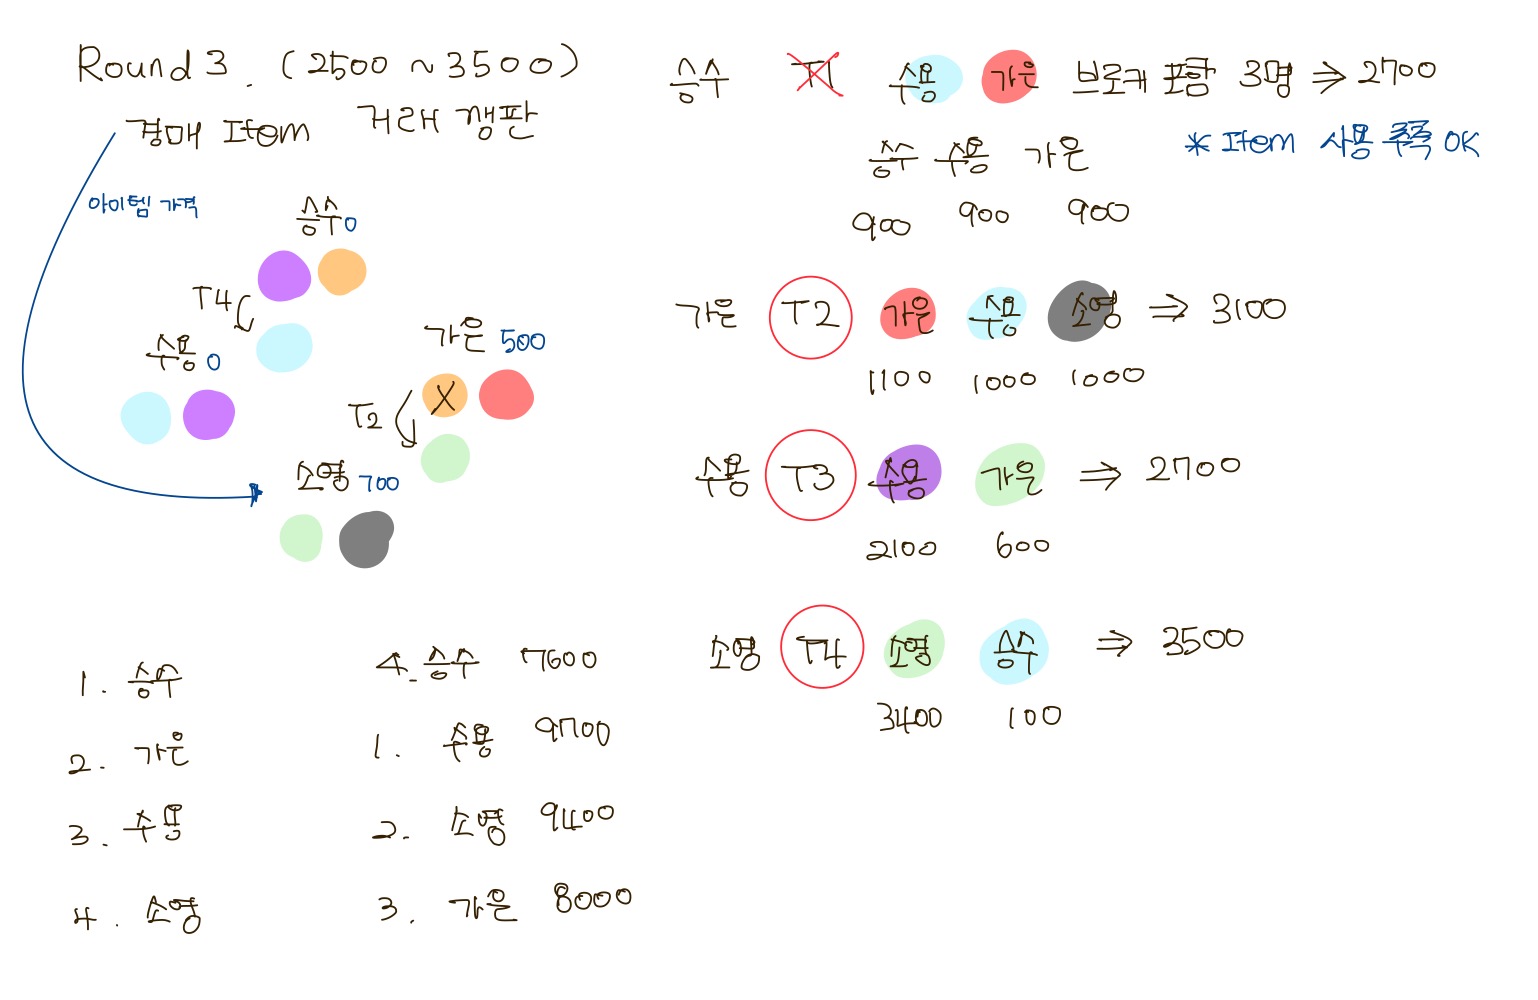 Round 3. (2500 ~ 3500)
경매 Item 거래 깽판
아이템 가격
승수 0
T4
수용 0
가은 500
X
T2
소영 700
1. 승수
2. 가은
3. 수용
4. 소영
4. 승수 7600
1. 수용 9700
2. 소영 9400
3. 가은 8000
승수 T1 수용 가은 브로커 포함 3명 ⇒ 2700
* Item 사용 쪽쪽 OK
승수 수용 가은
900 900 900
가은 T2 가은 수용 소영 ⇒ 3100
1100 1000 1000
수용 T3 수용 가은 ⇒ 2700
2100 600
소영 T4 소영 승수 ⇒ 3500
3400 100